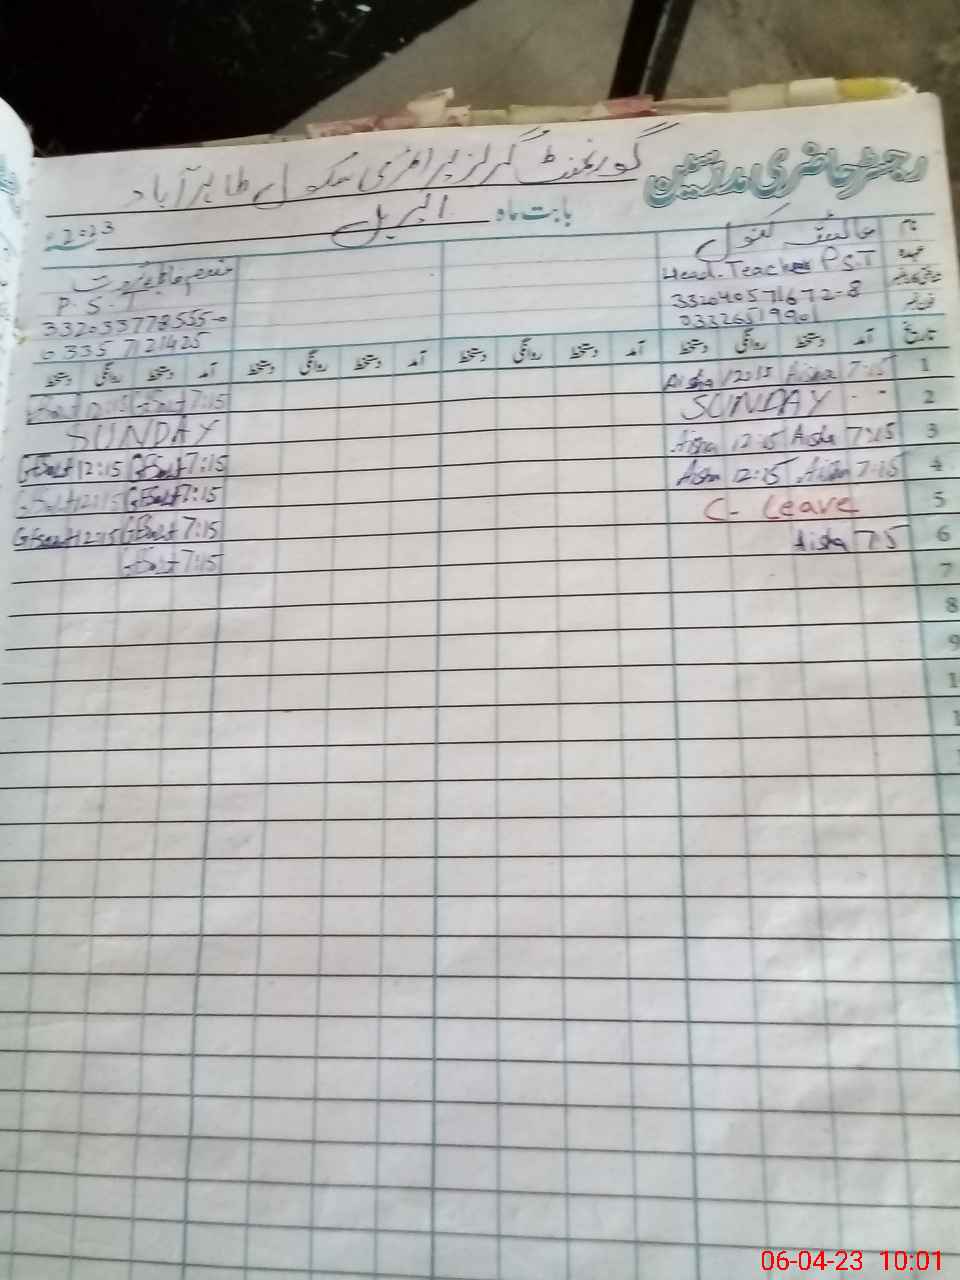 رجسٹر حاضری مدرسین گورنمنٹ گرلز پرائمری سکول طاہر آباد
بابت ماہ اپریل 2023ء
نام عائشہ کنول
عہدہ Head-Teacher P.S.T P.S.T
شناختی کارڈ نمبر 332040571672-8 332033778555-0
فون نمبر 03326519901 03357121425
تاریخ آمد دستخط روانگی دستخط آمد دستخط روانگی دستخط آمد دستخط روانگی دستخط آمد دستخط روانگی دستخط
1 7:15 Aisha 12:15 Aisha 7:15 12:15
2 SUNDAY SUNDAY
3 7:15 Aisha 12:15 Aisha 7:15 12:15
4 7:15 Aisha 12:15 Aisha 7:15 12:15
5 C- Leave 7:15 12:15
6 7:5 Aisha 7:15
7
8
9
06-04-23 10:01